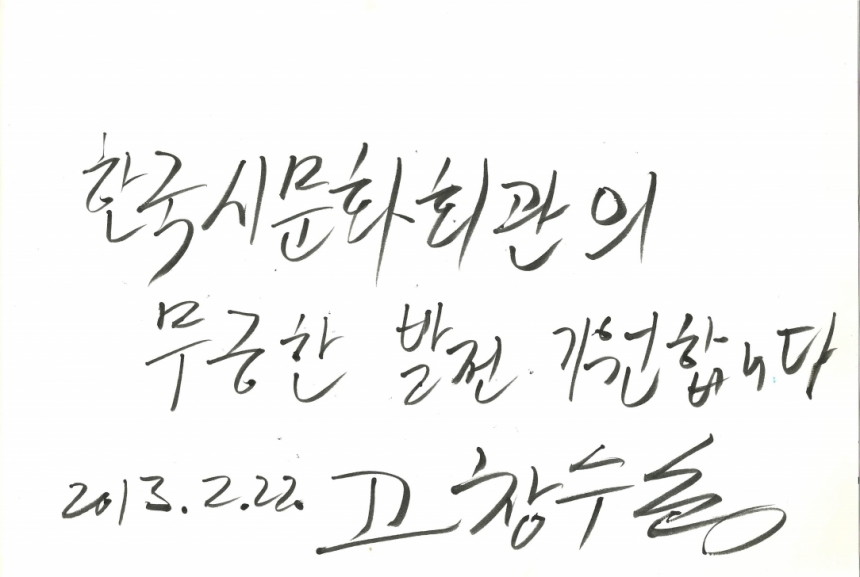 한국시문화회관의
무궁한 발전 기원합니다
2013.2.22. 고창수